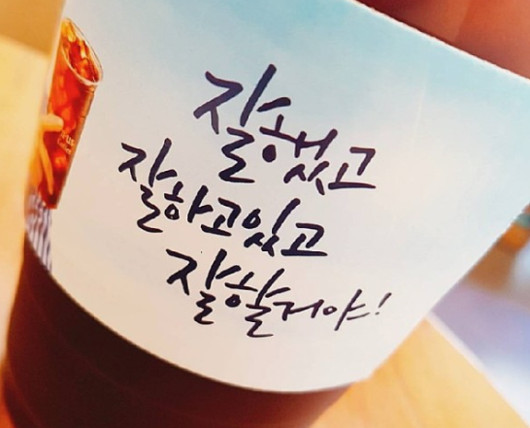 잘했고
잘하고있고
잘할거야!